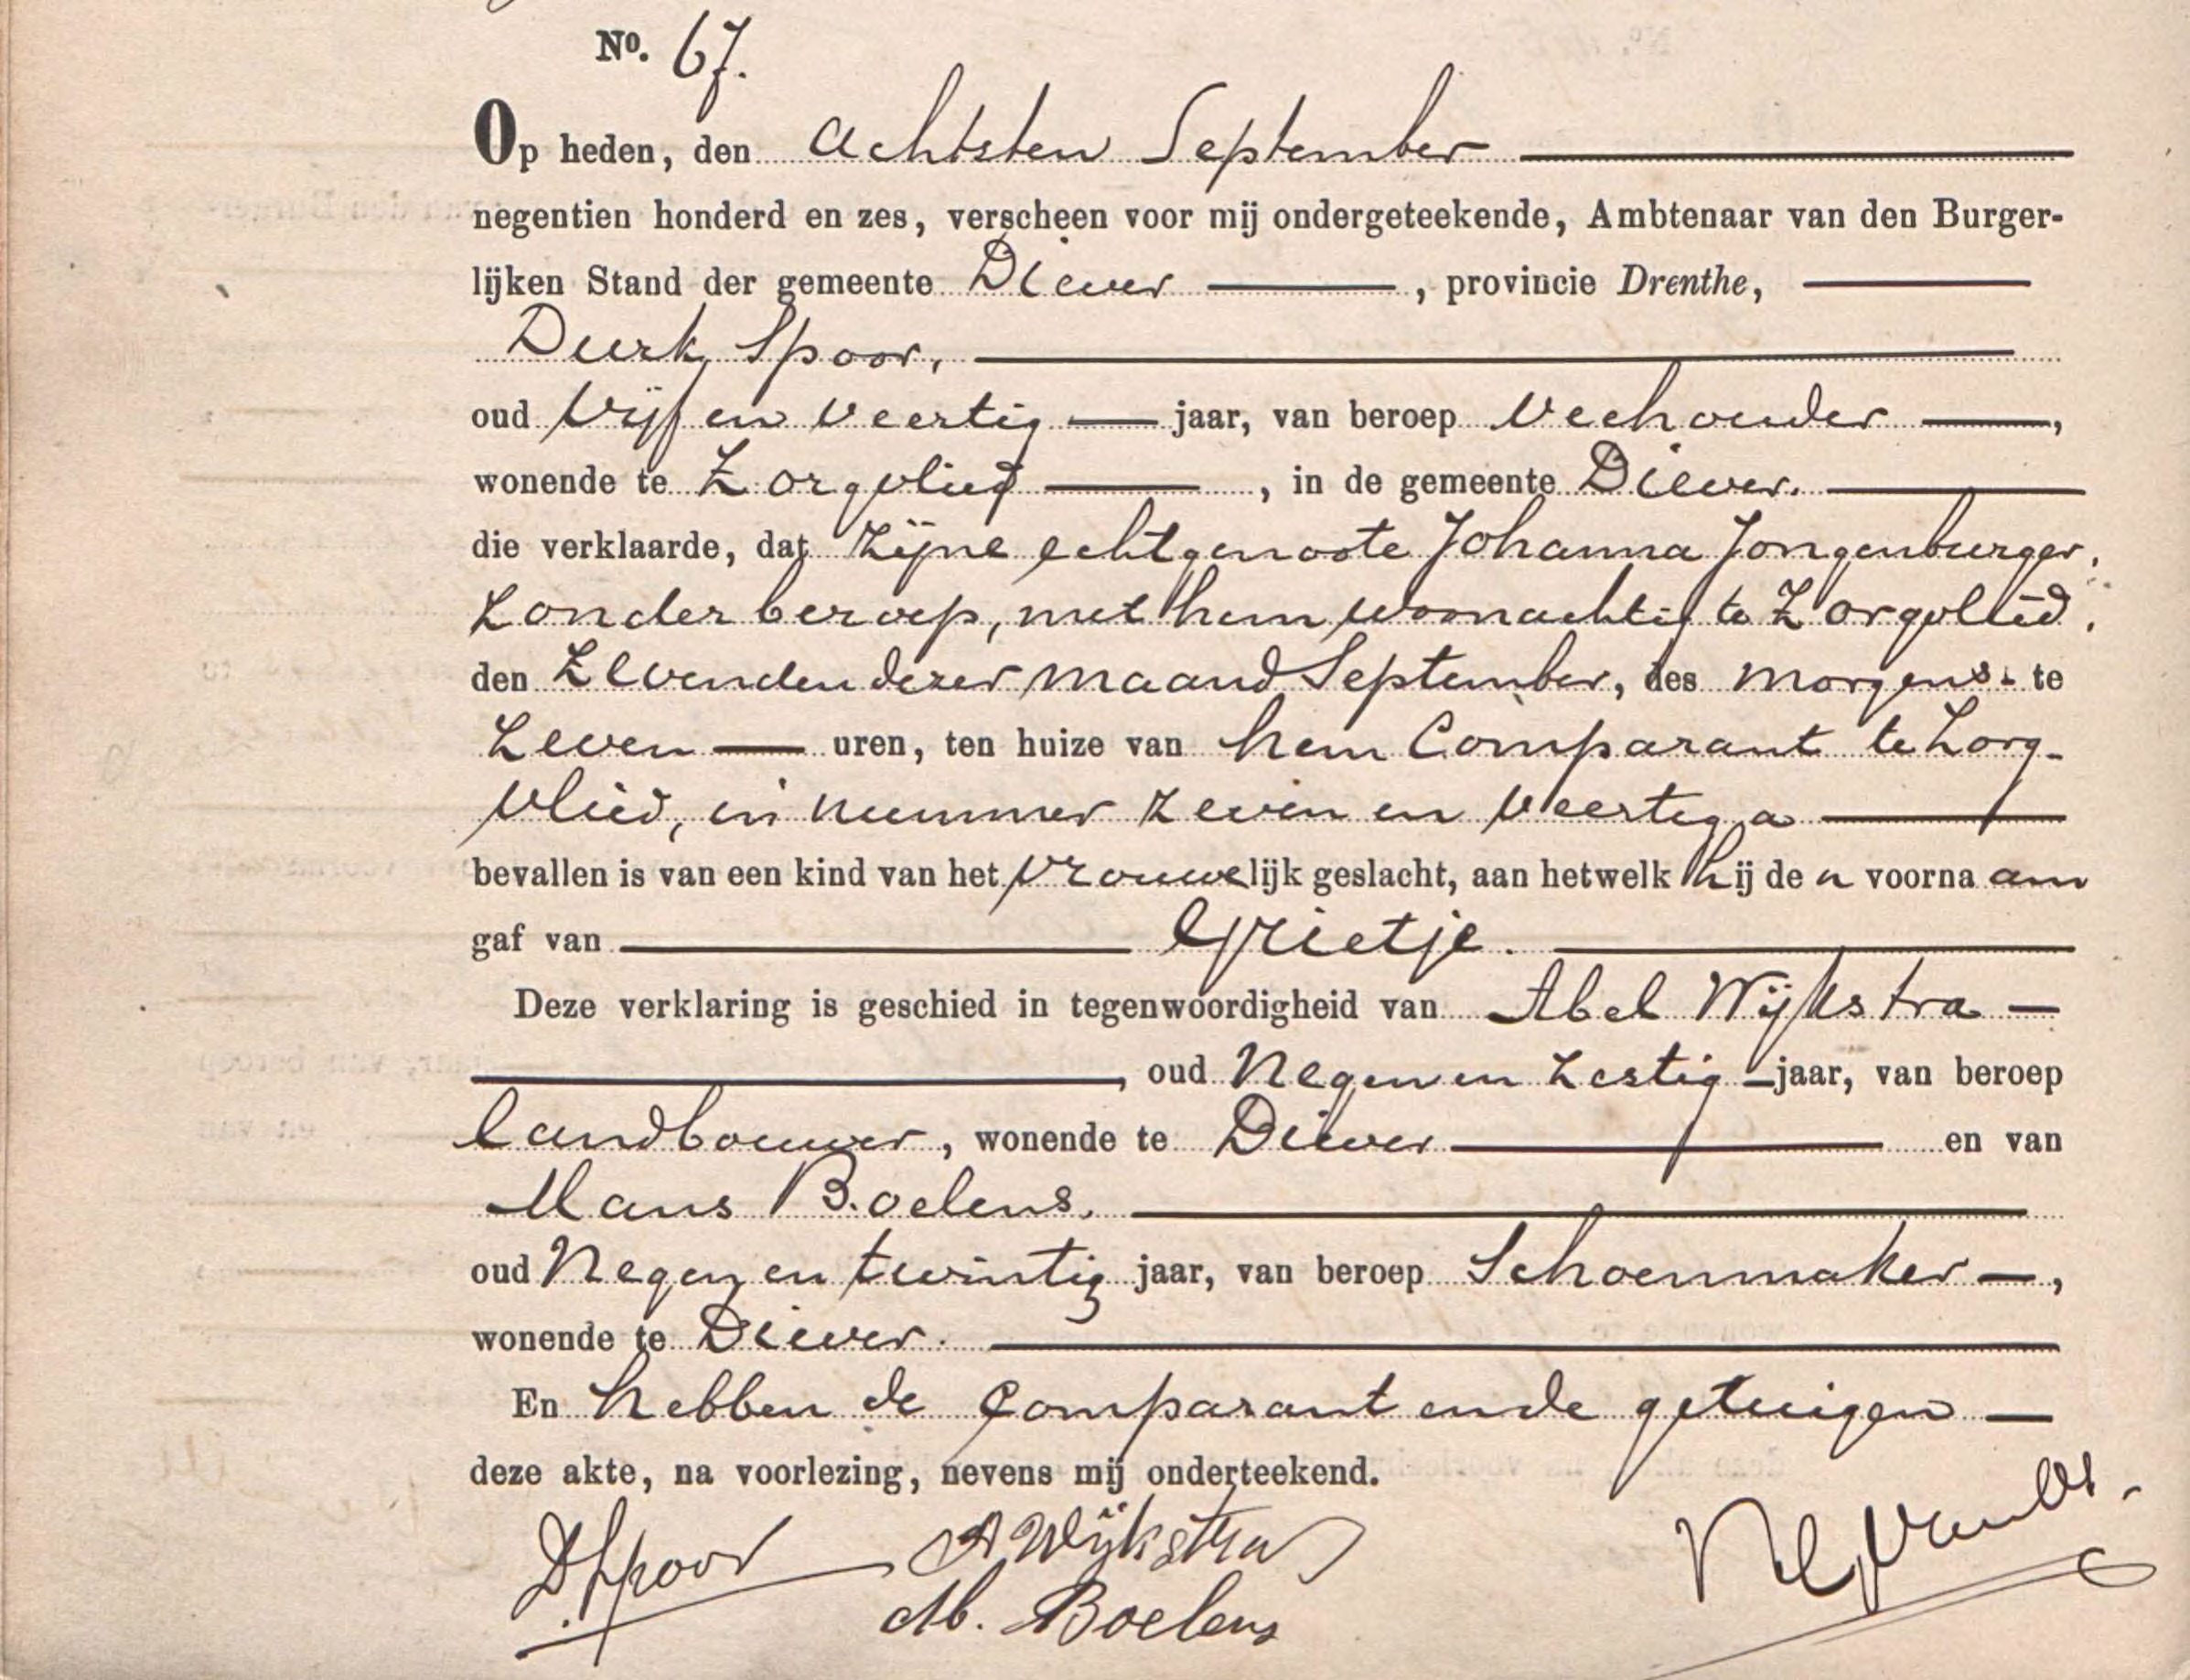 No. 67.
Op heden, den achtsten September
negentien honderd en zes, verscheen voor mij ondergeteekende, Ambtenaar van den Burger-
lijken Stand der gemeente Diever, provincie Drenthe,
Durk Spoor,
oud vijf en veertig jaar, van beroep Veehouder,
wonende te Zorgvlied, in de gemeente Diever.
die verklaarde, dat zijne echtgenoote Johanna Jongenburger,
zonder beroep, met hem woonachtig te Zorgvlied,
den Zevenden dezer maand September, des morgens te
Zeven uren, ten huize van hem Comparant te Zorg-
vlied, in nummer zeven en veertig a
bevallen is van een kind van het vrouwelijk geslacht, aan hetwelk hij den voornaam
gaf van Grietje.
Deze verklaring is geschied in tegenwoordigheid van Abel Wijkstra
, oud Negen en zestig jaar, van beroep
landbouwer, wonende te Diever en van
Mans Boelens,
oud Negen en twintig jaar, van beroep Schoenmaker,
wonende te Diever.
En hebben de Comparant en de getuigen
deze akte, na voorlezing, nevens mij onderteekend.
D Spoor A Wijkstra
M. Boelens